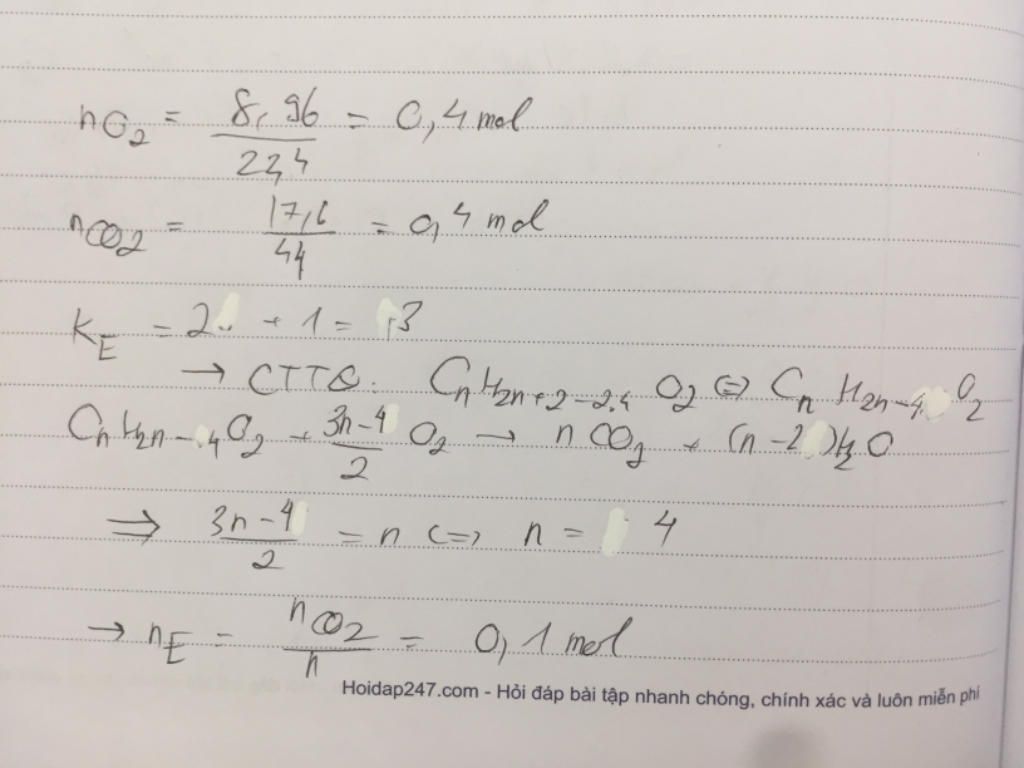 nO2 = 8,96 / 22,4 = 0,4 mol
nCO2 = 17,6 / 44 = 0,4 mol
kE = 2 + 1 = 3
→ CTTQ: CnH2n+2-2.4 O2 <=> CnH2n-4 O2
CnH2n-4O2 + (3n-4)/2 O2 → n CO2 + (n-2)H2O
=> (3n-4)/2 = n <=> n = 4
→ nE = nCO2 / n = 0,1 mol
Hoidap247.com - Hỏi đáp bài tập nhanh chóng, chính xác và luôn miễn phí